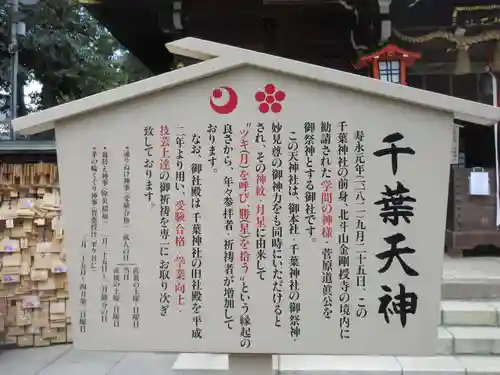 千葉天神
寿永元年(一一八二)九月二十五日、この
千葉神社の前身、北斗山金剛授寺の境内に
勧請された学問の神様・菅原道眞公を
御祭神とする御社です。
この天神社は、御本社・千葉神社の御祭神・
妙見尊の御神力をも同時にいただけると
され、その神紋・月星に由来して
“ツキ(月)を呼び・勝(星)を拾う”という縁起の
良さから、年々参拝者・祈祷者が増加して
おります。
なお、御社殿は千葉神社の旧社殿を平成
二年より用い、受験合格・学業向上・
技芸上達の御祈祷を専一にお取り次ぎ
致しております。